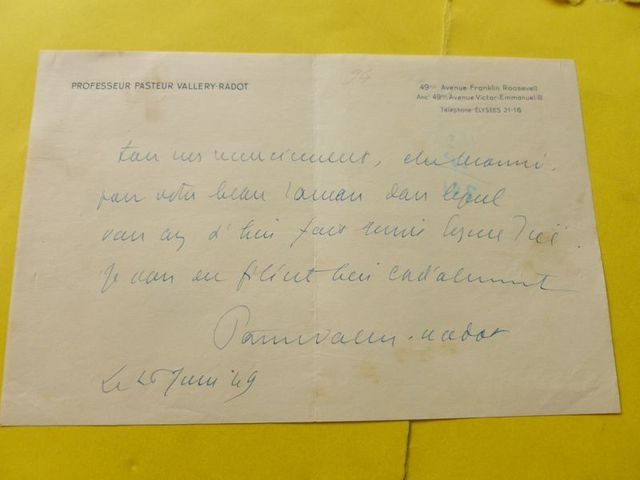 94
PROFESSEUR PASTEUR VALLERY-RADOT
49 Avenue Franklin Roosevelt
Anc 49 Avenue Victor-Emmanuel III
Téléphone : ELYSÉES 21-16
Tous mes remerciements, cher Monsieur,
pour votre beau roman dans lequel
vous
Je vous en félicite bien cordialement
Pasteur Vallery-Radot
Le Juin 49